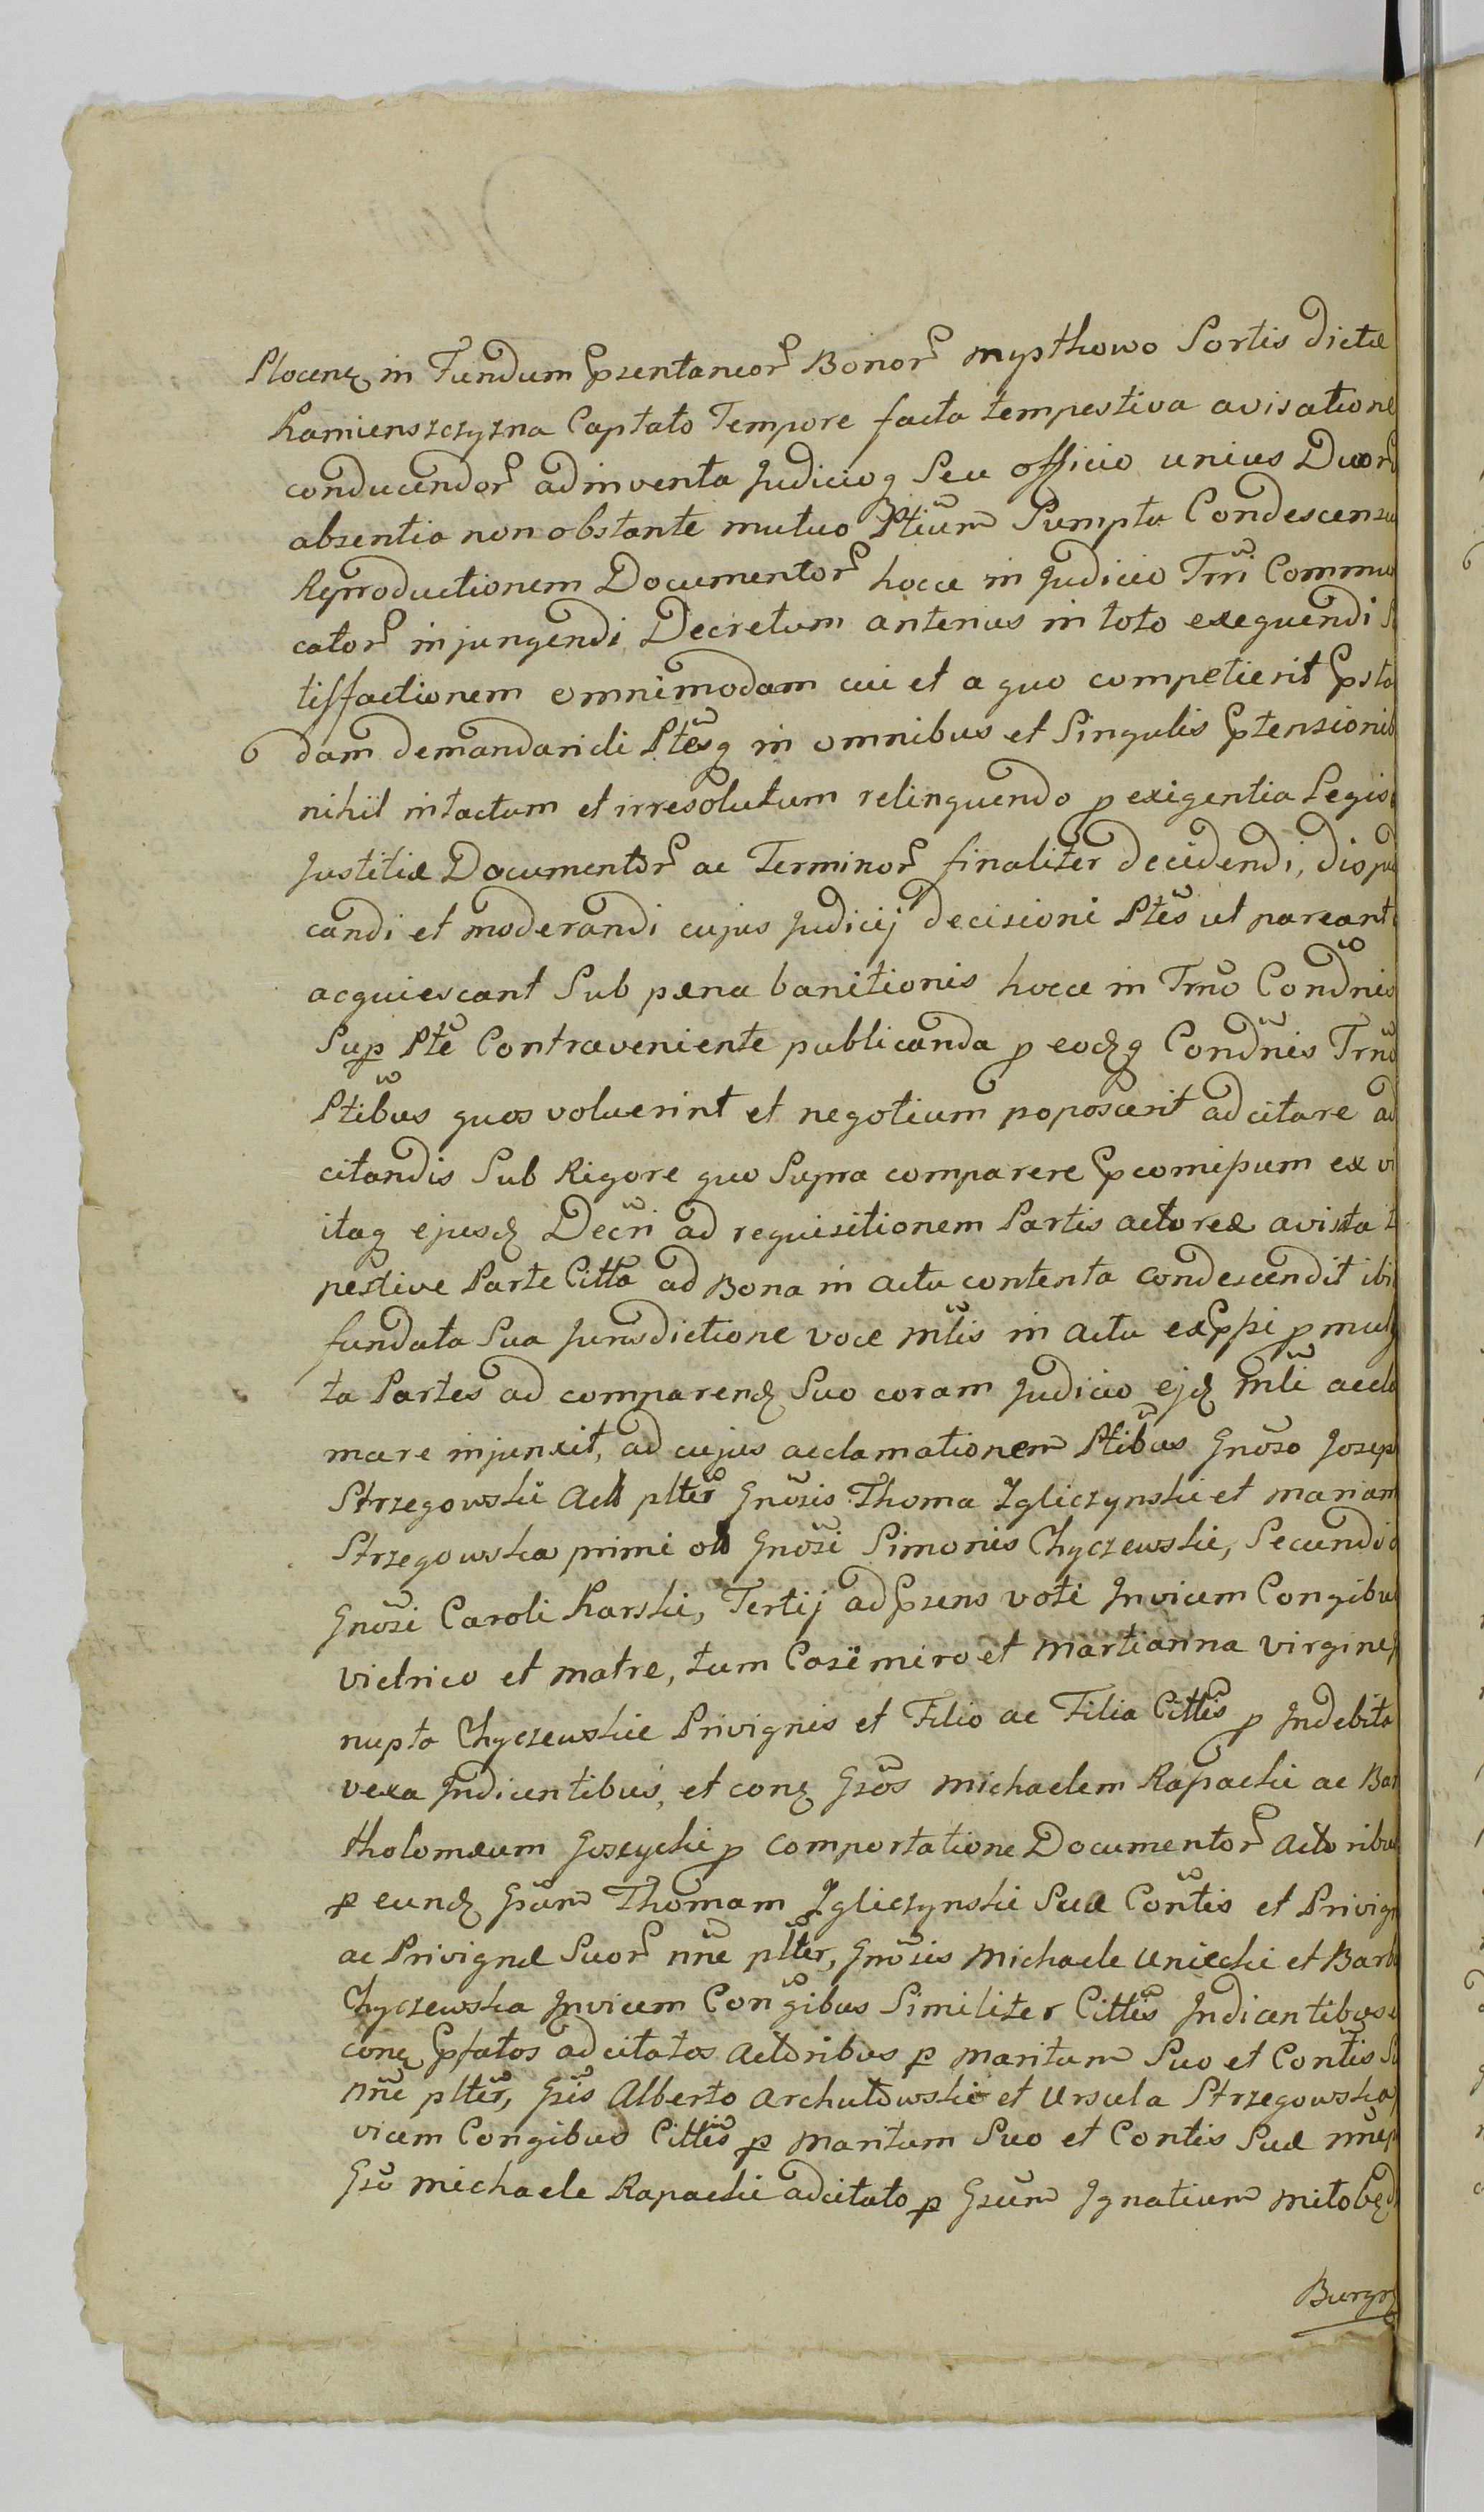 Plocenȝ in Fundum Pȝsentaneorꝝ Bonorꝝ Mysthowo Sortis dictæ
Kamienszczyzna Captato Tempore facta tempestiva avisatione
conducendorꝝ adinventa Judicioq Seu officio unius Duorꝝ
absentia non obstante mutuo Ptiũm Sumptu Condescensu
Reproductionem Documentorꝝ hocce in Judicio Trri Commu
catorꝝ injungendi Decretum anterius in toto exequendi S
tisfactionem omnimodam cui et a quo competierit Pȝsta
dam demandandi Ptẽsq in omnibus et Singulis Pȝtensionib
nihil intactum et irresolutum relinquendo p exigentia Legis
Justitiæ Documentorꝝ ac Terminorꝝ finaliter decidendi, dijudi
candi et moderandi cujus Judicij decisioni Ptẽs ut pareant
acquiescant Sub pæna banitionis hocce in Trño Condñis
Sup Ptẽ Contraveniente publicanda p eodȝq Condñis Trño
Ptĩbus quos voluerint et negotium poposcerit adcitare ad
citandis Sub Rigore quo Supra comparere Pȝcomissum ex vi
itaq ejusdȝ Decrĩ ad requisitionem Partis actoreæ avisata t
pestive Parte Citta ad Bona in actu contenta condescendit ibi
fundata Sua Jurisdictione voce Mltis in actu exPȝssi p mulg
ta Partes ad comparendȝ Suo coram Judicio ejdȝ Mlĩ accla
mare injunxit, ad cujus acclamationem Ptĩbus Gnõso Josep
Strzegowski Act plter Gnõsis Thoma Zgliczynski et Mariam
Strzegowska primi olȝ Gnõsi Simonis Chyczewski, Secundi o
Gnõsi Caroli Karski, Tertij ad Pȝsens voti Invicem Congibus
victrico et matre, tum Casimiro et Martianna virgine
nupta Chyczewskie Privignis et Filio ac Filia Cittis p Indebita
vexa Indicentibus, et conȝ Gsõs Michaelem Rapacki ac Bar
tholomæum Goszycki p comportatione Documentorꝝ actoribus
p eundȝ Gsũm Thomam Zgliczynski Suæ Contis et Privign
ac Privignæ Suorꝝ nñe plter, Gnõsis Michaele Uniecki et Barba
Chyczewska Invicem Congibus Similiter Cittis Indicentibus
conȝ Pȝfatos adcitatos Actoribus p Maritum Suo et Contis S
nñe plter, Gsĩs Alberto Archutowski et Ursula Strzegowska
vicem Congibus Cittis p Maritum Suo et Contis Suæ nñe p
Gsõ Michaele Rapacki adcitato p Gsũm Ignatium Mitobędz
Burgȝ